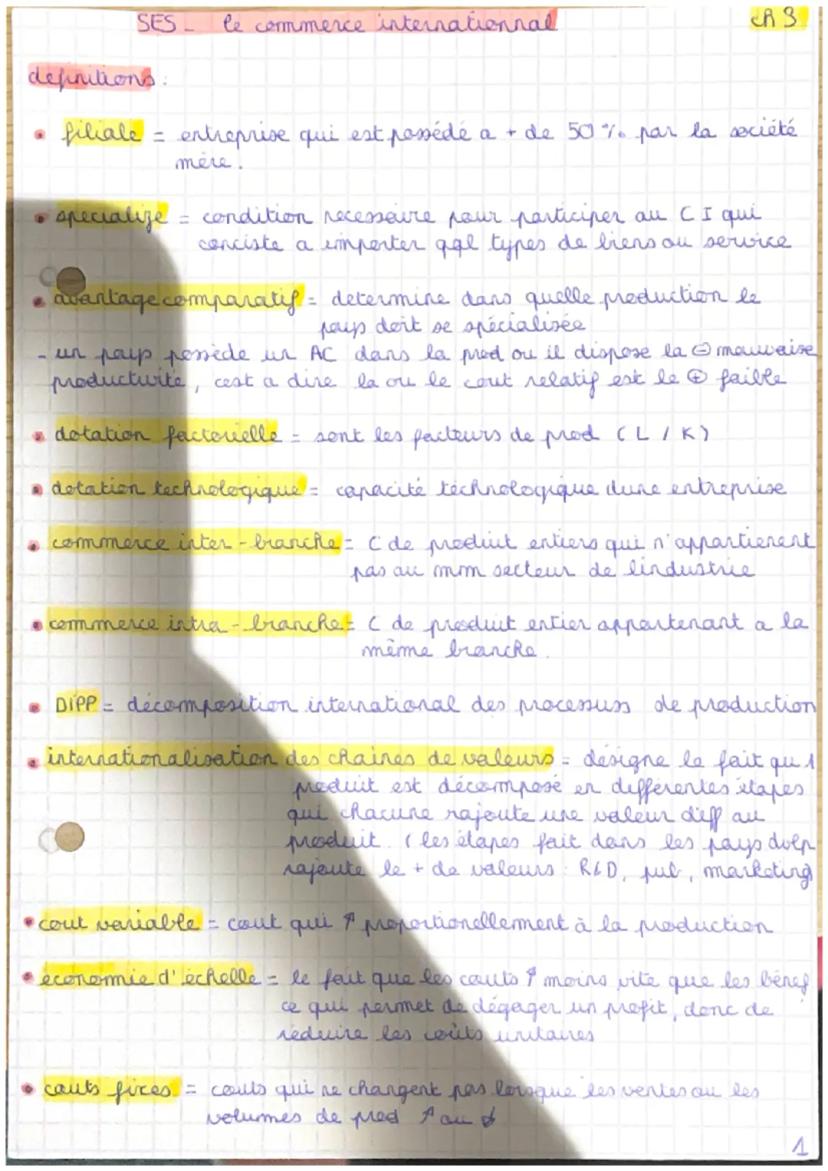 SES - le commerce internationnal CH 3
definitions :
• filiale = entreprise qui est possédé a + de 50 % par la société
mère.
• specialize = condition necesseaire pour participer au C I qui
conciste a importer qql types de biens ou service
• avantage comparatif = determine dans quelle production le
pays doit se spécialisée
- un pays possède un AC dans la prod ou il dispose la ⊖ mauvaise
productivité, cest a dire la ou le cout relatif est le ⊕ faible
• dotation factorielle = sont les facteurs de prod (L / K)
• dotation technologique = capacité technologique dune entreprise
• commerce inter-branche = C de produit entiers qui n'appartienent
pas au mm secteur de lindustrie
• commerce intra-branche = C de produit entier appartenant a la
même branche.
• DiPP = décomposition international des processus de production
• internationalisation des chaines de valeurs = désigne le fait qu 1
produit est décomposé en différentes étapes
qui chacune rajoute une valeur diff au
produit. (les étapes fait dans les pays dvlp
rajoute le + de valeurs : R&D, pub, marketing
• cout variable = cout qui ↑ proportionellement à la production
• économie d'échelle = le fait que les couts ↑ moins vite que les bénef
ce qui permet de dégager un profit, donc de
réduire les coûts unitaires
• couts fixes = couts qui ne changent pas lorsque les ventes ou les
volumes de prod ↑ ou ↓
1